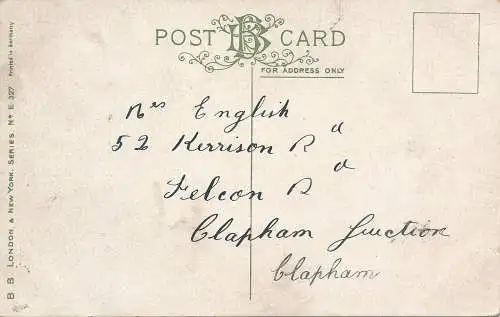 POST BB CARD
FOR ADDRESS ONLY
Mrs English
52 Kerrison Rd
Felcon Rd
Clapham Junction
Clapham
B B. LONDON & NEW YORK. SERIES NO E 327. Printed in Germany